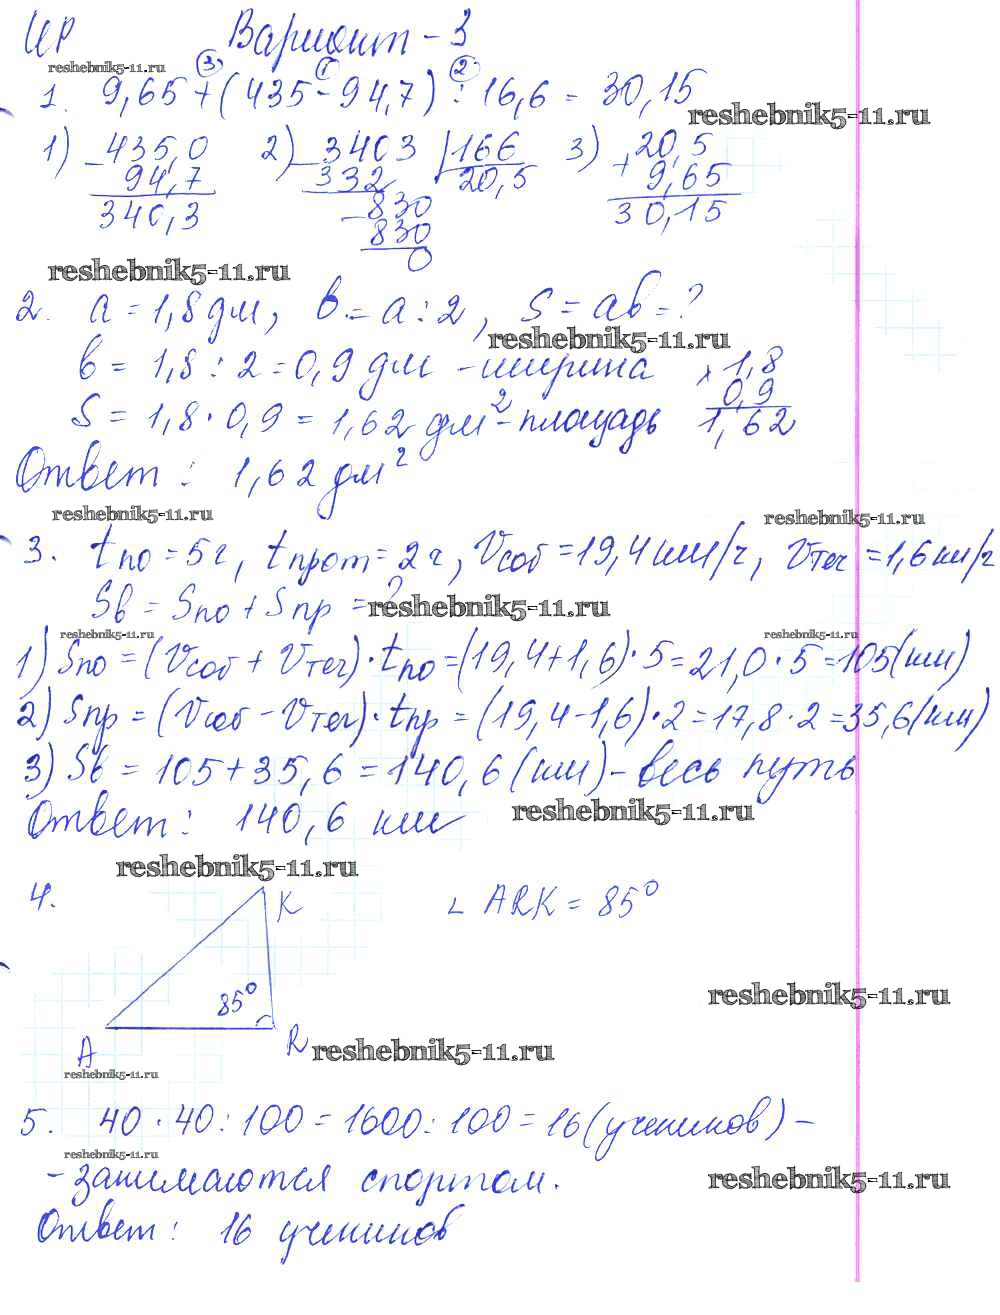 ИР Вариант - 3
reshebnik5-11.ru
3 1 2
1. 9,65 + (435 - 94,7) : 16,6 = 30,15
reshebnik5-11.ru
1) 435,0 2) 3403 | 166 3) 20,5
- 94,7 - 332 20,5 + 9,65
340,3 - 830 30,15
830
0
reshebnik5-11.ru
2. a = 1,8 дм, b = a : 2, S = ab = ?
reshebnik5-11.ru
b = 1,8 : 2 = 0,9 дм - ширина × 1,8
0,9
S = 1,8 · 0,9 = 1,62 дм² - площадь 1,62
Ответ : 1,62 дм²
reshebnik5-11.ru reshebnik5-11.ru
3. tпо = 5 ч, tпрот = 2 ч, Vсоб = 19,4 км/ч, Vтеч = 1,6 км/ч
Sв = Sпо + Sпр = ?
reshebnik5-11.ru
reshebnik5-11.ru reshebnik5-11.ru
1) Sпо = (Vсоб + Vтеч) · tпо = (19,4 + 1,6) · 5 = 21,0 · 5 = 105 (км)
2) Sпр = (Vсоб - Vтеч) · tпр = (19,4 - 1,6) · 2 = 17,8 · 2 = 35,6 (км)
3) Sв = 105 + 35,6 = 140,6 (км) - весь путь
Ответ : 140,6 км
reshebnik5-11.ru
reshebnik5-11.ru
4. K ∟ ARK = 85°
85°
reshebnik5-11.ru
A R
reshebnik5-11.ru
reshebnik5-11.ru
5. 40 · 40 : 100 = 1600 : 100 = 16 (учеников) -
reshebnik5-11.ru
- занимаются спортом.
reshebnik5-11.ru
Ответ : 16 учеников